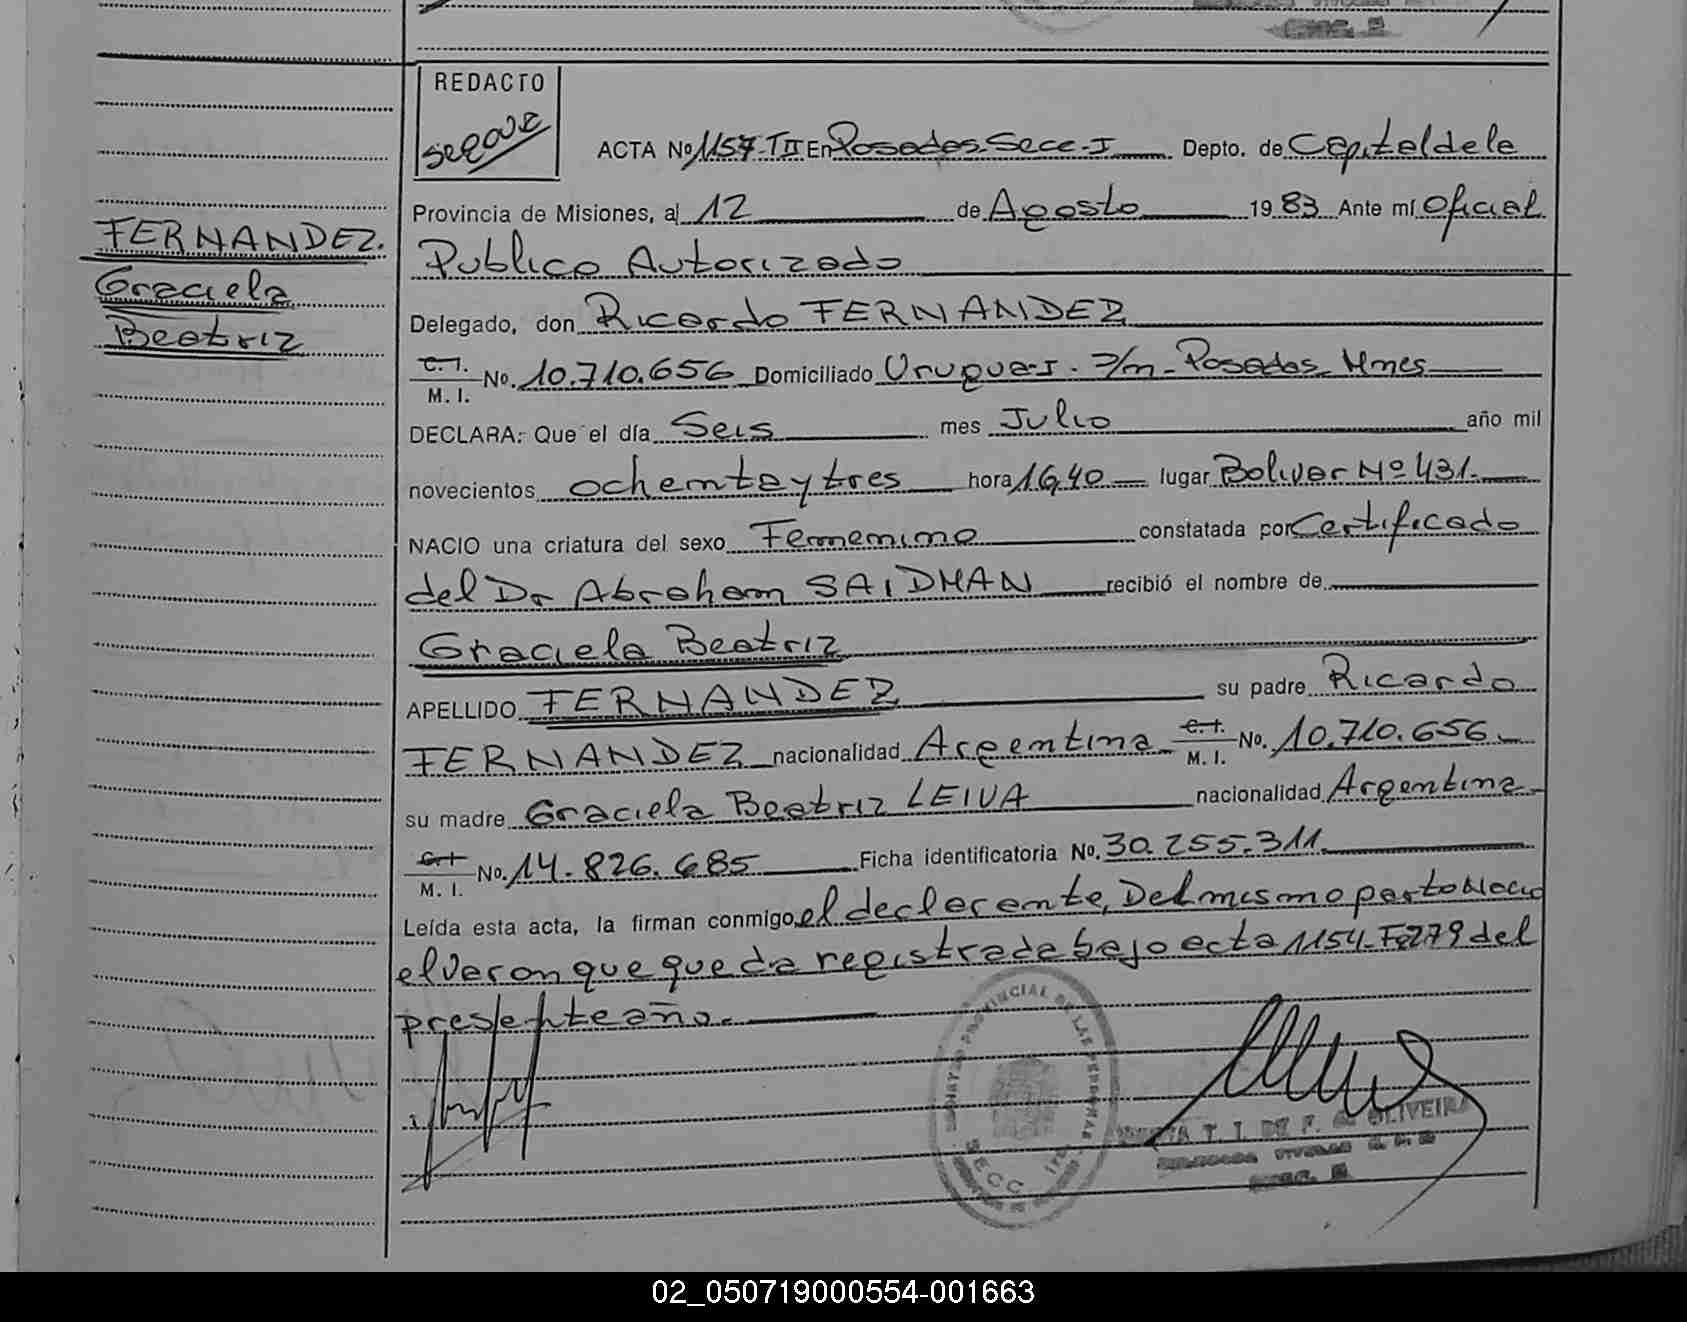 REDACTO
ACTA No 1157-TII En Posadas Secc-I Depto. de Capital de la
Provincia de Misiones, a 12 de Agosto 1983 Ante mí Oficial
FERNANDEZ.
Graciela
Beatriz
Publico Autorizado
Delegado, don Ricardo FERNANDEZ
C. I.
M. I. No. 10.710.656 Domiciliado Urugua-I. Posadas Mnes
DECLARA: Que el día Seis mes Julio año mil
novecientos ochentaytres hora 16,40 lugar Bolivar Nº 431.
NACIO una criatura del sexo Femenino constatada por Certificado
del Dr Abraham SAIDMAN recibió el nombre de
Graciela Beatriz
APELLIDO FERNANDEZ su padre Ricardo
FERNANDEZ nacionalidad Argentina C. I. M. I. No. 10.710.656
su madre Graciela Beatriz LEIVA nacionalidad Argentina
C. I.
M. I. No. 14.826.685 Ficha identificatoria No. 30.255.311
Leída esta acta, la firman conmigo, el declarante, Del mismo parto Nacio
el Varon que queda registrada bajo acta 1154 Fº279 del
presente año.
PROVINCIAL DE LAS PERSONAS
SECC
T. I. DE F. OLIVEIRA
02_050719000554-001663